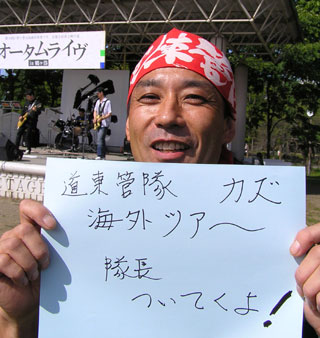 オータムライヴ
道東管隊 カズ
海外ツアー
隊長
ついてくよ!